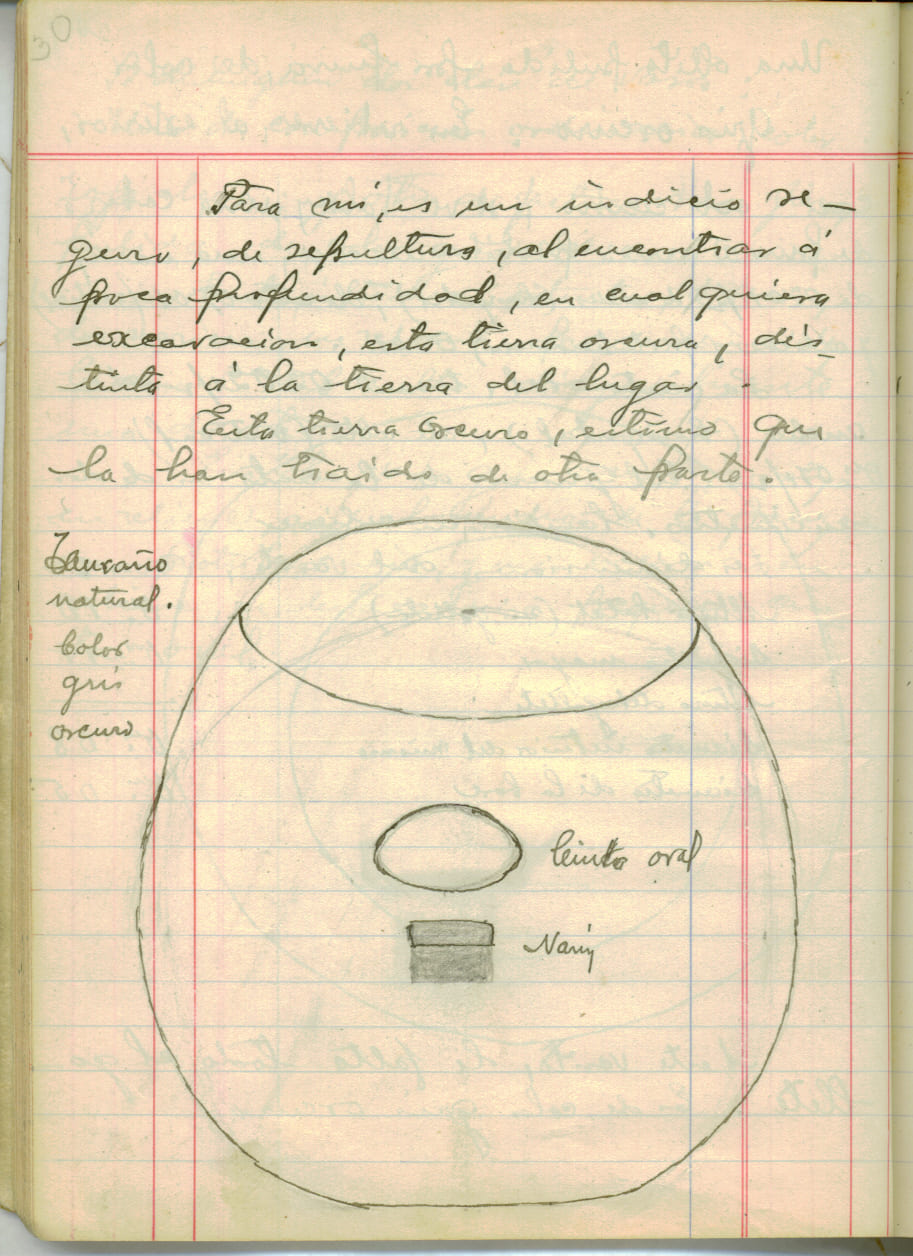 30
Para mí, es un indicio se-
guro, de sepultura, al encontrar á
poca profundidad, en cualquiera
excavacion, esta tierra oscura, dis-
tinta á la tierra del lugar.
Esta tierra oscura, estimo que
la han traido de otra parte.
Tamaño
natural.
Color
gris
oscuro
oval
Nariz